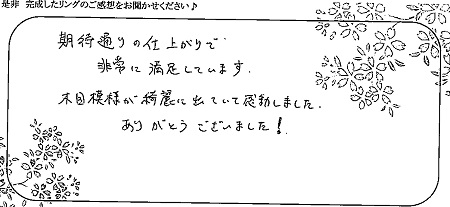 是非 完成したリングのご感想をお聞かせください♪
期待通りの仕上がりで
非常に満足しています.
木目模様が綺麗に出ていて感動しました.
ありがとうございました!